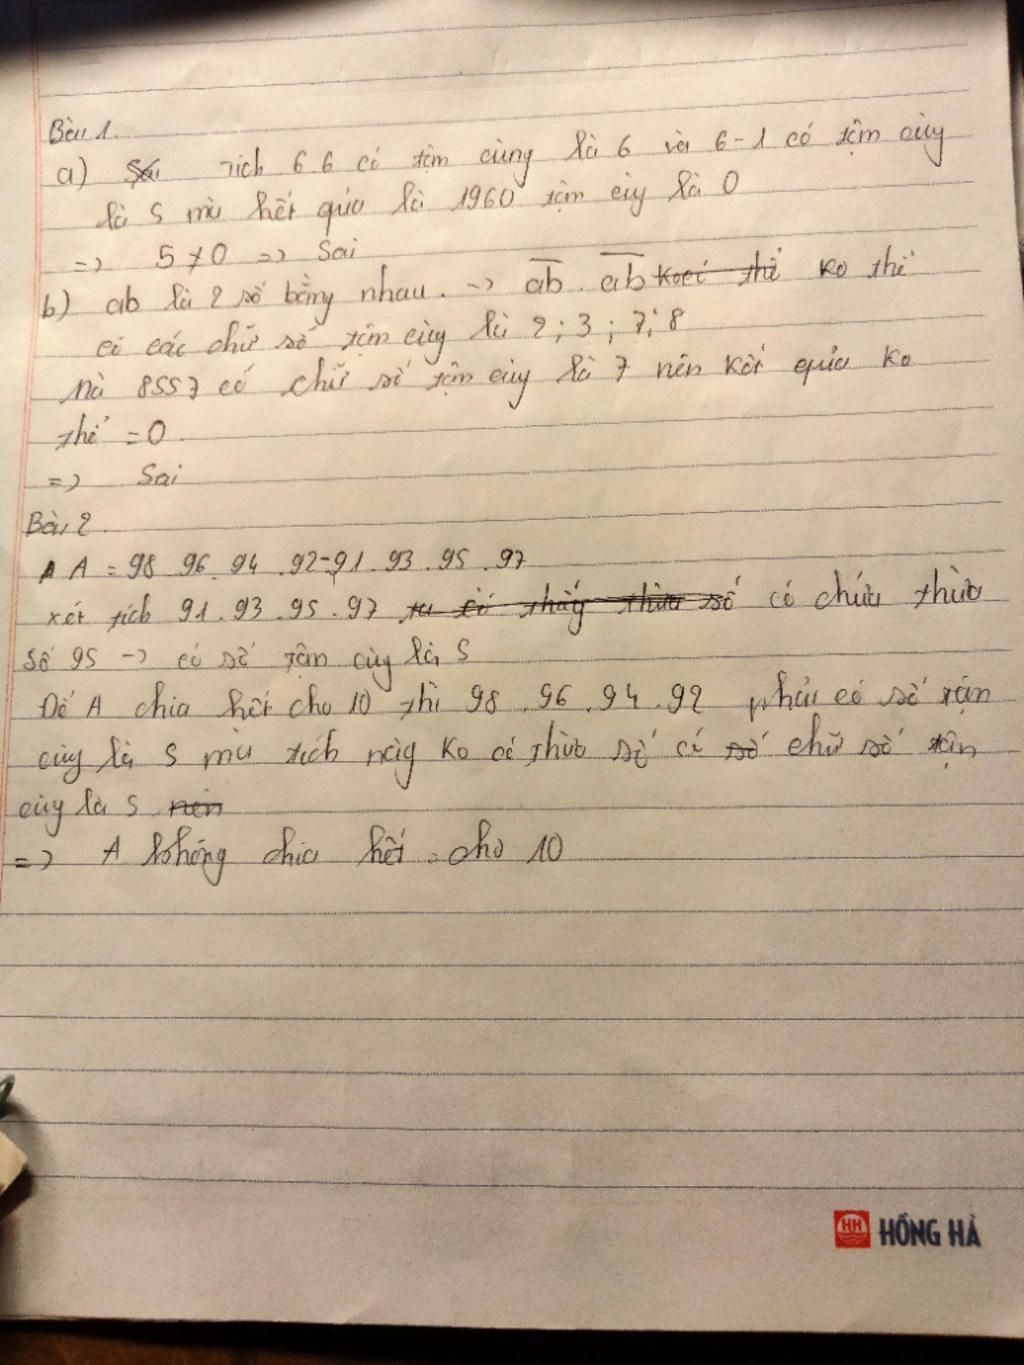 Bài 1.
a) Tích 6.6 có tận cùng là 6 và 6-1 có tận cùg
là 5 mà kết quả là 1960 tận cùg là 0
=> 5 ≠ 0 => Sai
b) ab là 2 số bằng nhau. -> ab . ab ko thể
có các chữ số tận cùg là 2 ; 3 ; 7 ; 8
mà 8557 có chữ số tận cùg là 7 nên kết quả ko
thể = 0
=> Sai
Bài 2.
A = 98 . 96 . 94 . 92 - 91 . 93 . 95 . 97
xét tích 91 . 93 . 95 . 97 ta có thấy thừa số có chứa thừa
số 95 -> có số tận cùg là 5
Để A chia hết cho 10 thì 98 . 96 . 94 . 92 phải có số tận
cùg là 5 mà tích này ko có thừa số có số chữ số tận
cùg là 5 nên
=> A không chia hết cho 10
HH HỒNG HÀ